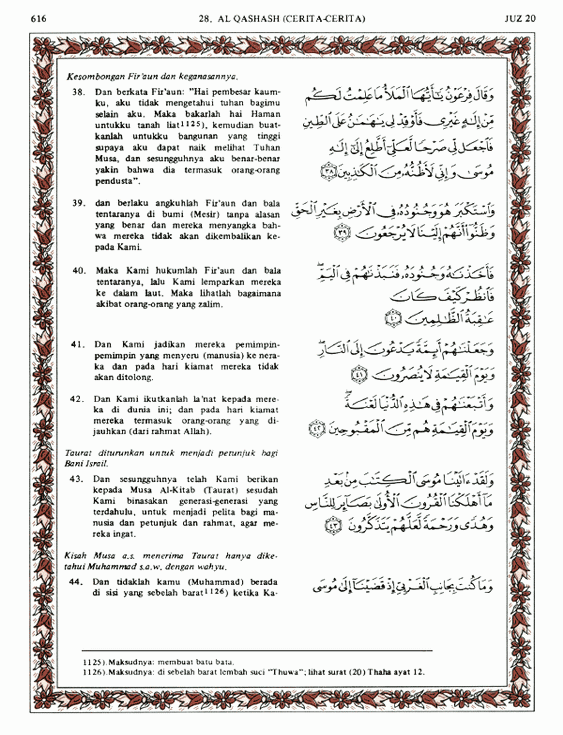 616
28. AL QASHASH (CERITA-CERITA)
JUZ 20
Kesombongan Fir'aun dan keganasannya.
38. Dan berkata Fir'aun: "Hai pembesar kaum-
ku, aku tidak mengetahui tuhan bagimu
selain aku. Maka bakarlah hai Haman
untukku tanah liat1125), kemudian buat-
kanlah untukku bangunan yang tinggi
supaya aku dapat naik melihat Tuhan
Musa, dan sesungguhnya aku benar-benar
yakin bahwa dia termasuk orang-orang
pendusta".
وَقَالَ فِرْعَوْنُ يَٰٓأَيُّهَا ٱلْمَلَأُ مَا عَلِمْتُ لَكُم
مِّنْ إِلَٰهٍ غَيْرِى فَأَوْقِدْ لِى يَٰهَٰمَٰنُ عَلَى ٱلطِّينِ
فَٱجْعَل لِّى صَرْحًا لَّعَلِّىٓ أَطَّلِعُ إِلَىٰٓ إِلَٰهِ
مُوسَىٰ وَإِنِّى لَأَظُنُّهُۥ مِنَ ٱلْكَٰذِبِينَ ٣٨
39. dan berlaku angkuhlah Fir'aun dan bala
tentaranya di bumi (Mesir) tanpa alasan
yang benar dan mereka menyangka bah-
wa mereka tidak akan dikembalikan ke-
pada Kami.
وَٱسْتَكْبَرَ هُوَ وَجُنُودُهُۥ فِى ٱلْأَرْضِ بِغَيْرِ ٱلْحَقِّ
وَظَنُّوٓا۟ أَنَّهُمْ إِلَيْنَا لَا يُرْجَعُونَ ٣٩
40. Maka Kami hukumlah Fir'aun dan bala
tentaranya, lalu Kami lemparkan mereka
ke dalam laut. Maka lihatlah bagaimana
akibat orang-orang yang zalim.
فَأَخَذْنَٰهُ وَجُنُودَهُۥ فَنَبَذْنَٰهُمْ فِى ٱلْيَمِّ
فَٱنظُرْ كَيْفَ كَانَ
عَٰقِبَةُ ٱلظَّٰلِمِينَ ٤٠
41. Dan Kami jadikan mereka pemimpin-
pemimpin yang menyeru (manusia) ke nera-
ka dan pada hari kiamat mereka tidak
akan ditolong.
وَجَعَلْنَٰهُمْ أَئِمَّةً يَدْعُونَ إِلَى ٱلنَّارِ
وَيَوْمَ ٱلْقِيَٰمَةِ لَا يُنصَرُونَ ٤١
42. Dan Kami ikutkanlah la'nat kepada mere-
ka di dunia ini; dan pada hari kiamat
mereka termasuk orang-orang yang di-
jauhkan (dari rahmat Allah).
وَأَتْبَعْنَٰهُمْ فِى هَٰذِهِ ٱلدُّنْيَا لَعْنَةً
وَيَوْمَ ٱلْقِيَٰمَةِ هُم مِّنَ ٱلْمَقْبُوحِينَ ٤٢
Taurat diturunkan untuk menjadi petunjuk bagi
Bani Israil.
43. Dan sesungguhnya telah Kami berikan
kepada Musa Al-Kitab (Taurat) sesudah
Kami binasakan generasi-generasi yang
terdahulu, untuk menjadi pelita bagi ma-
nusia dan petunjuk dan rahmat, agar me-
reka ingat.
وَلَقَدْ ءَاتَيْنَا مُوسَى ٱلْكِتَٰبَ مِنۢ بَعْدِ
مَآ أَهْلَكْنَا ٱلْقُرُونَ ٱلْأُولَىٰ بَصَآئِرَ لِلنَّاسِ
وَهُدًى وَرَحْمَةً لَّعَلَّهُمْ يَتَذَكَّرُونَ ٤٣
Kisah Musa a.s. menerima Taurat hanya dike-
tahui Muhammad s.a.w. dengan wahyu.
44. Dan tidaklah kamu (Muhammad) berada
di sisi yang sebelah barat1126) ketika Ka-
وَمَا كُنتَ بِجَانِبِ ٱلْغَرْبِىِّ إِذْ قَضَيْنَآ إِلَىٰ مُوسَى
1125). Maksudnya: membuat batu bata.
1126). Maksudnya: di sebelah barat lembah suci "Thuwa"; lihat surat (20) Thaha ayat 12.